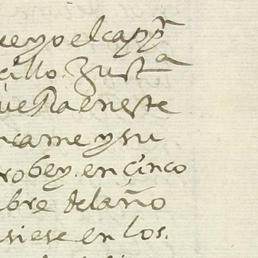 ue yo el cappn
cillo. Just a
ue Ra en este
n came y su
robey. en çinco
bre del año
siese en los.